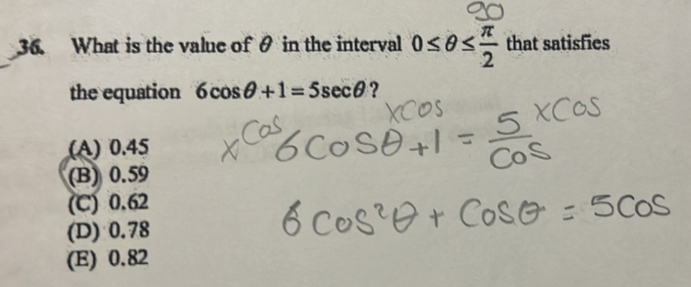 90
36. What is the value of θ in the interval 0 ≤ θ ≤ π/2 that satisfies
the equation 6cosθ + 1 = 5secθ?
(A) 0.45
(B) 0.59
(C) 0.62
(D) 0.78
(E) 0.82
xCos xCOS xCOS
6COSθ + 1 = 5/COS
6COS²θ + COSθ = 5COS